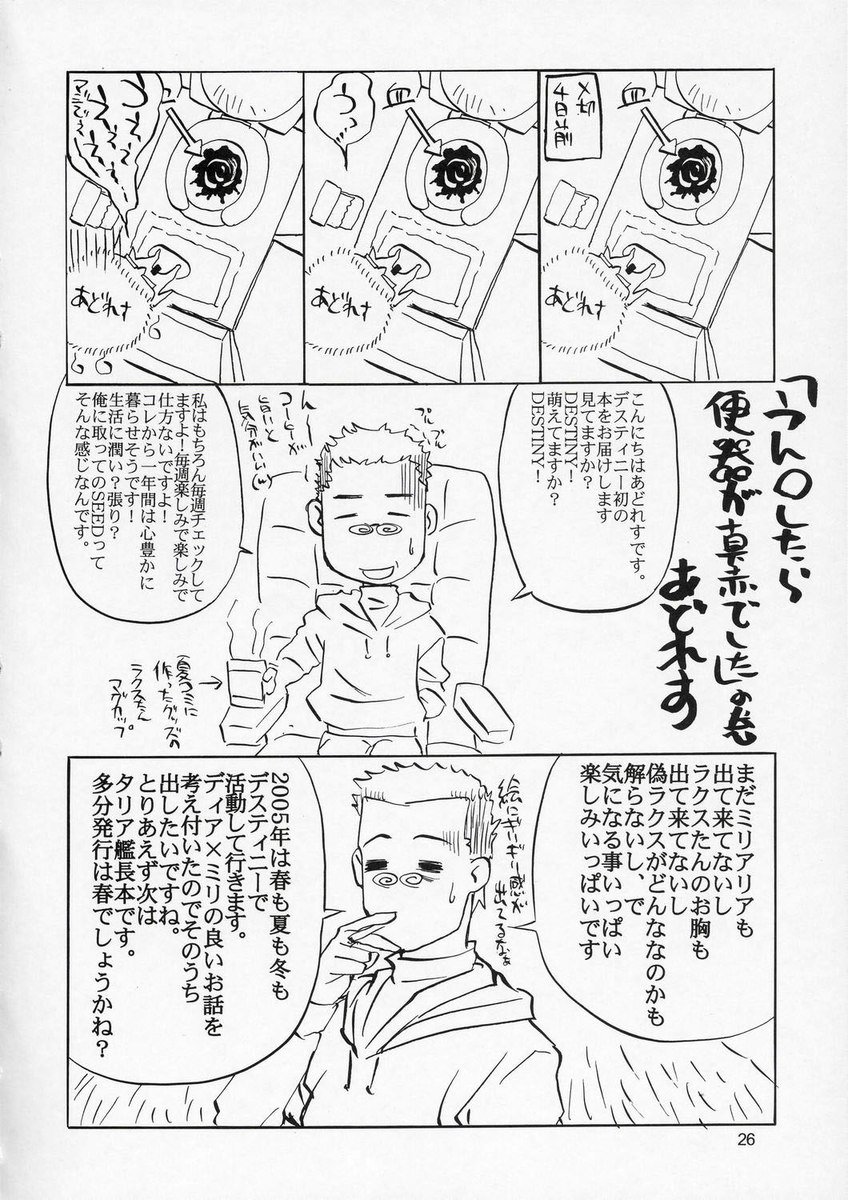 〆切
4日前
血
あどれす
う
血
あどれす
血
あどれす
「うん○したら
便器が真赤でした」の巻
あどれす
こんにちはあどれすです。
デスティニー初の
本をお届けします
見てますか？
DESTINY！
萌えてますか？
DESTINY！
プルプル
プルプル
コーヒーが
旨いと
気分がいい
私はもちろん毎週チェックして
ますよ！毎週楽しみで楽しみで
仕方ないですよ！
コレから一年間は心豊かに
暮らせそうです！
生活に潤い？張り？
俺に取ってのSEEDって
そんな感じなんです。
夏コミに
作ったグッズの
ラクスたん
マグカップ。
まだミリアリアも
出て来てないし
ラクスたんのお胸も
出て来てないし
偽ラクスがどんななのかも
解らないし、で
気になる事いっぱい
楽しみいっぱいです
絵にギリギリ感が
出てるなぁ
2005年は春も夏も冬も
デスティニーで
活動して行きます。
ディア×ミリの良いお話を
考え付いたのでそのうち
出したいですね。
とりあえず次は
タリア艦長本です。
多分発行は春でしょうかね？
26